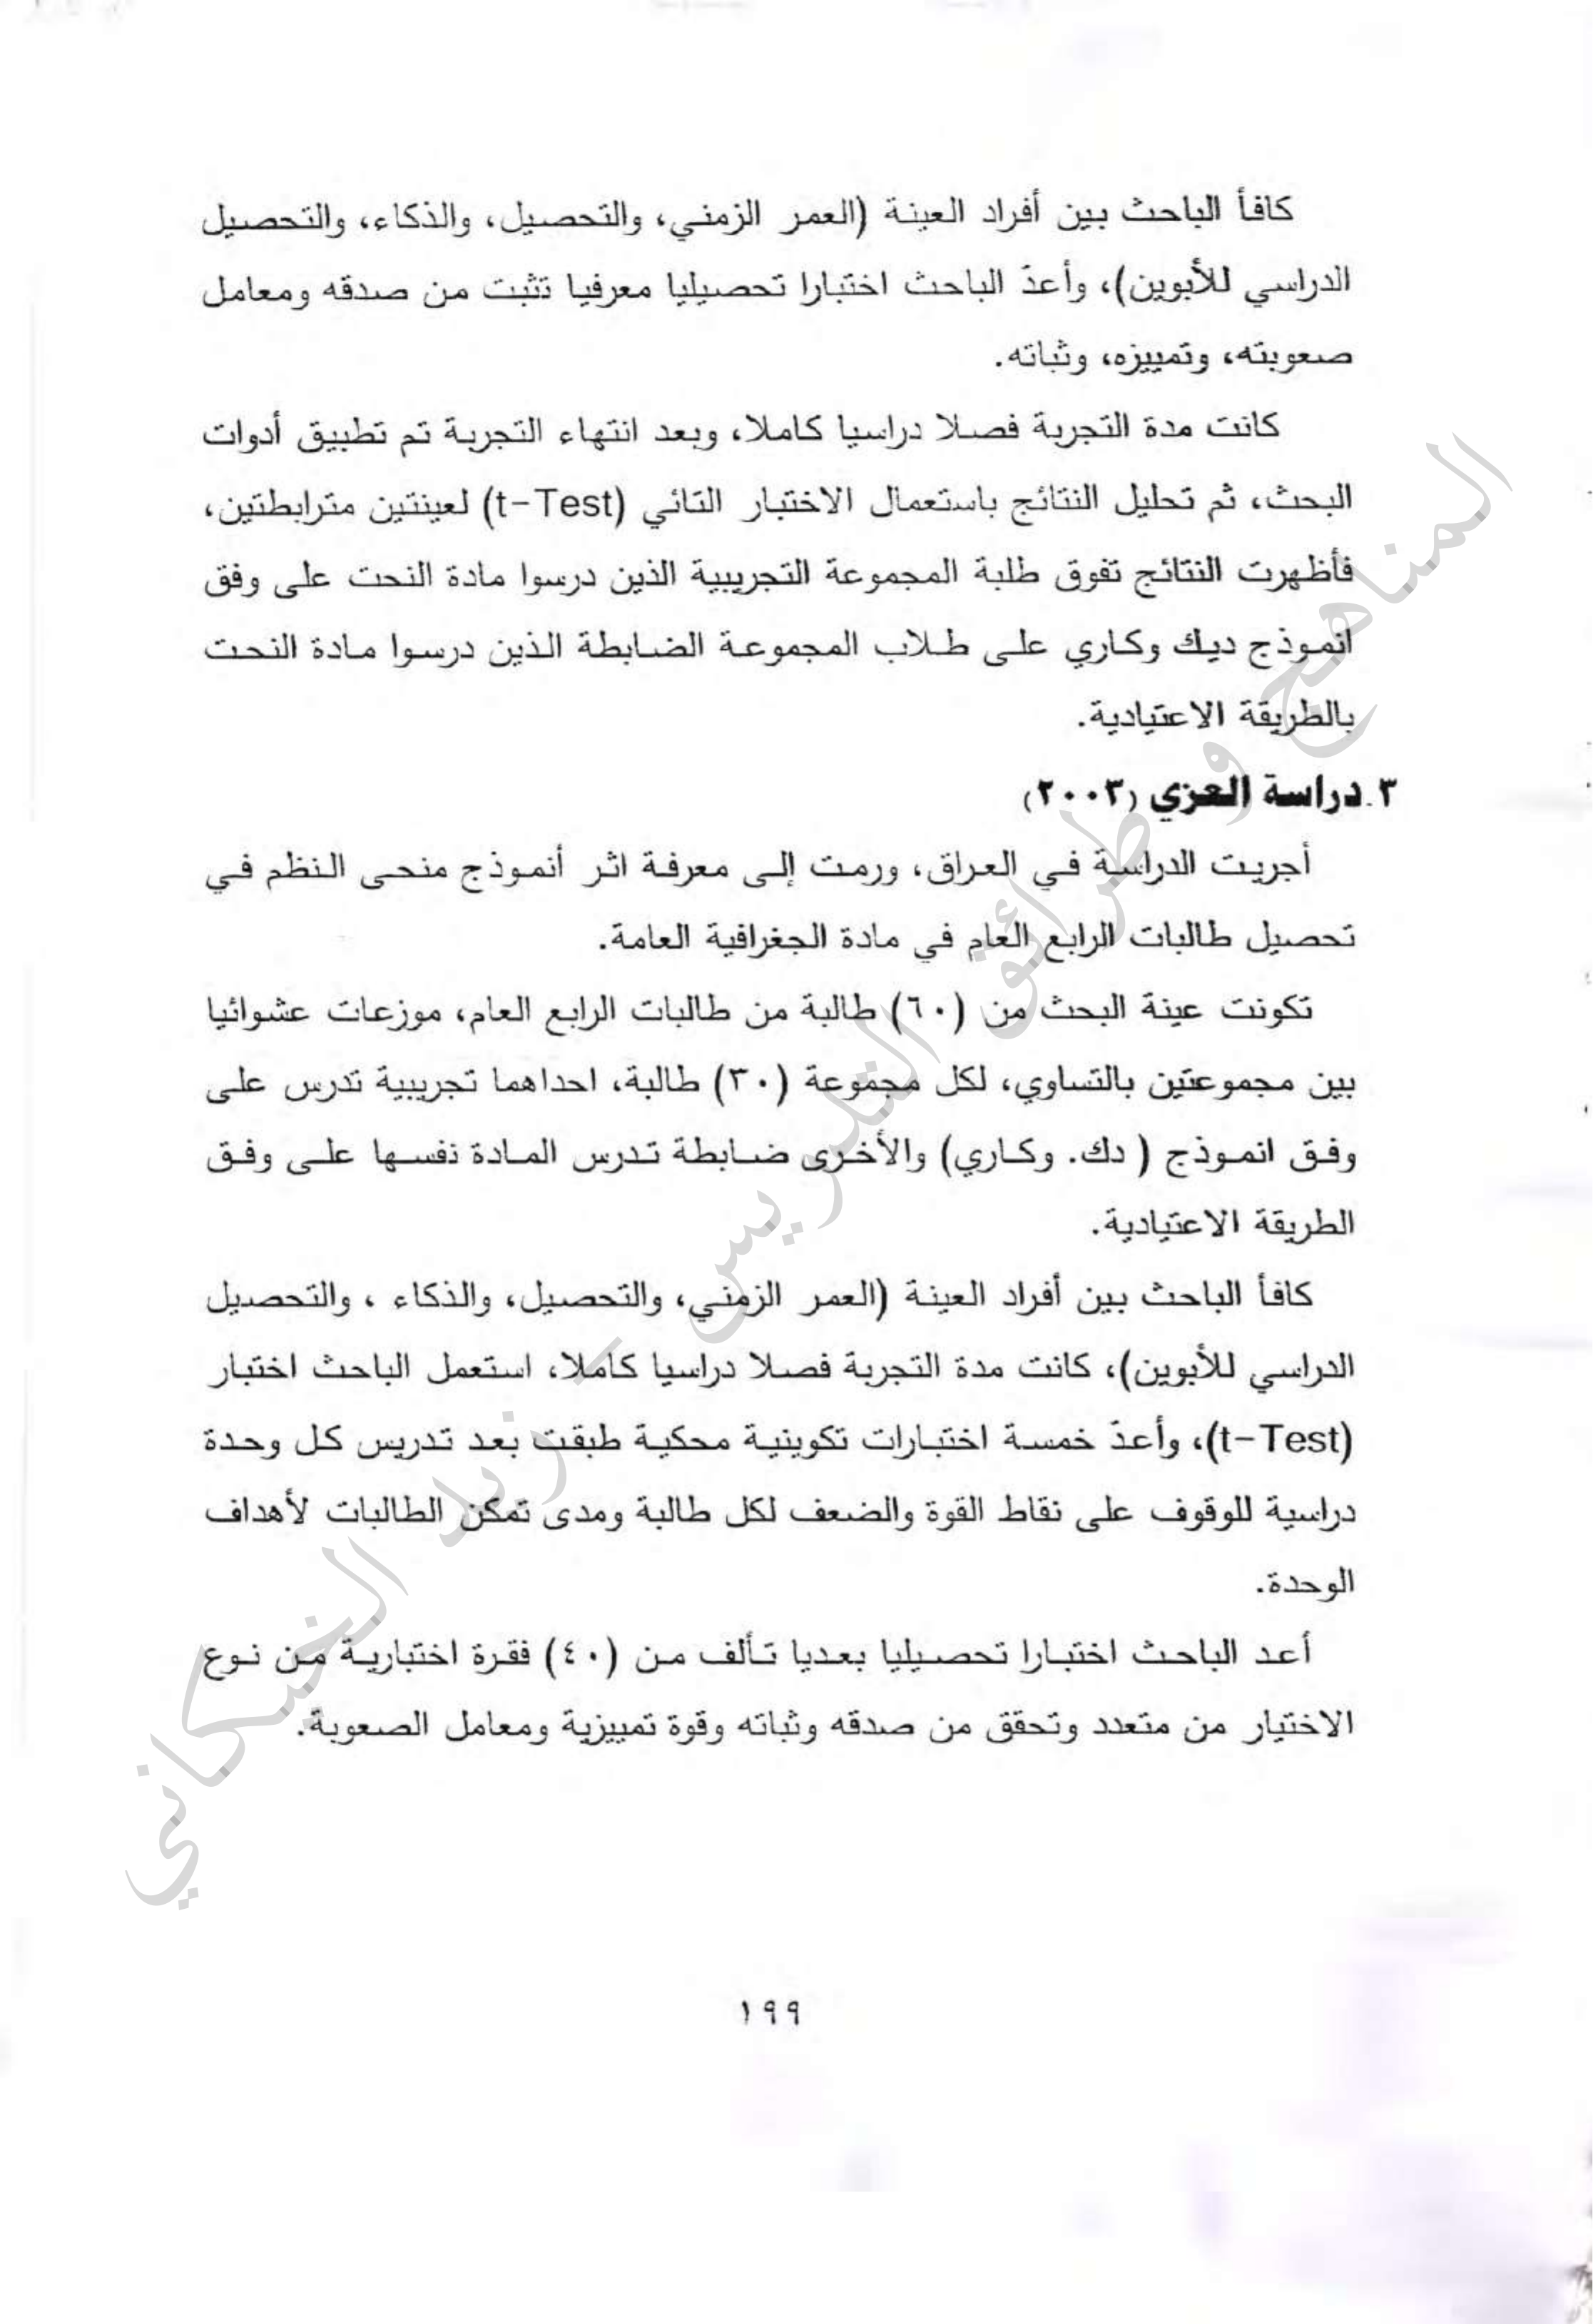 كافأ الباحث بين أفراد العينة (العمر الزمني، والتحصيل، والذكاء، والتحصيل
الدراسي للأبوين)، وأعدّ الباحث اختبارا تحصيليا معرفيا تثبت من صدقه ومعامل
صعوبته، وتمييزه، وثباته.
كانت مدة التجربة فصلا دراسيا كاملا، وبعد انتهاء التجربة تم تطبيق أدوات
البحث، ثم تحليل النتائج باستعمال الاختبار التائي (t-Test) لعينتين مترابطتين،
فأظهرت النتائج تفوق طلبة المجموعة التجريبية الذين درسوا مادة النحت على وفق
انموذج ديك وكاري على طلاب المجموعة الضابطة الذين درسوا مادة النحت
بالطريقة الاعتيادية.
٣. دراسة العزي (٢٠٠٣)
أجريت الدراسة في العراق، ورمت إلى معرفة اثر أنموذج منحى النظم في
تحصيل طالبات الرابع العام في مادة الجغرافية العامة.
تكونت عينة البحث من (٦٠) طالبة من طالبات الرابع العام، موزعات عشوائيا
بين مجموعتين بالتساوي، لكل مجموعة (٣٠) طالبة، احداهما تجريبية تدرس على
وفق انموذج ( دك. وكاري) والأخرى ضابطة تدرس المادة نفسها على وفق
الطريقة الاعتيادية.
كافأ الباحث بين أفراد العينة (العمر الزمني، والتحصيل، والذكاء ، والتحصيل
الدراسي للأبوين)، كانت مدة التجربة فصلا دراسيا كاملا، استعمل الباحث اختبار
(t-Test)، وأعدّ خمسة اختبارات تكوينية محكية طبقت بعد تدريس كل وحدة
دراسية للوقوف على نقاط القوة والضعف لكل طالبة ومدى تمكن الطالبات لأهداف
الوحدة.
أعد الباحث اختبارا تحصيليا بعديا تألف من (٤٠) فقرة اختبارية من نوع
الاختيار من متعدد وتحقق من صدقه وثباته وقوة تمييزية ومعامل الصعوبة.
المناهج وطرائق التدريس - زيد الخيكاني
١٩٩